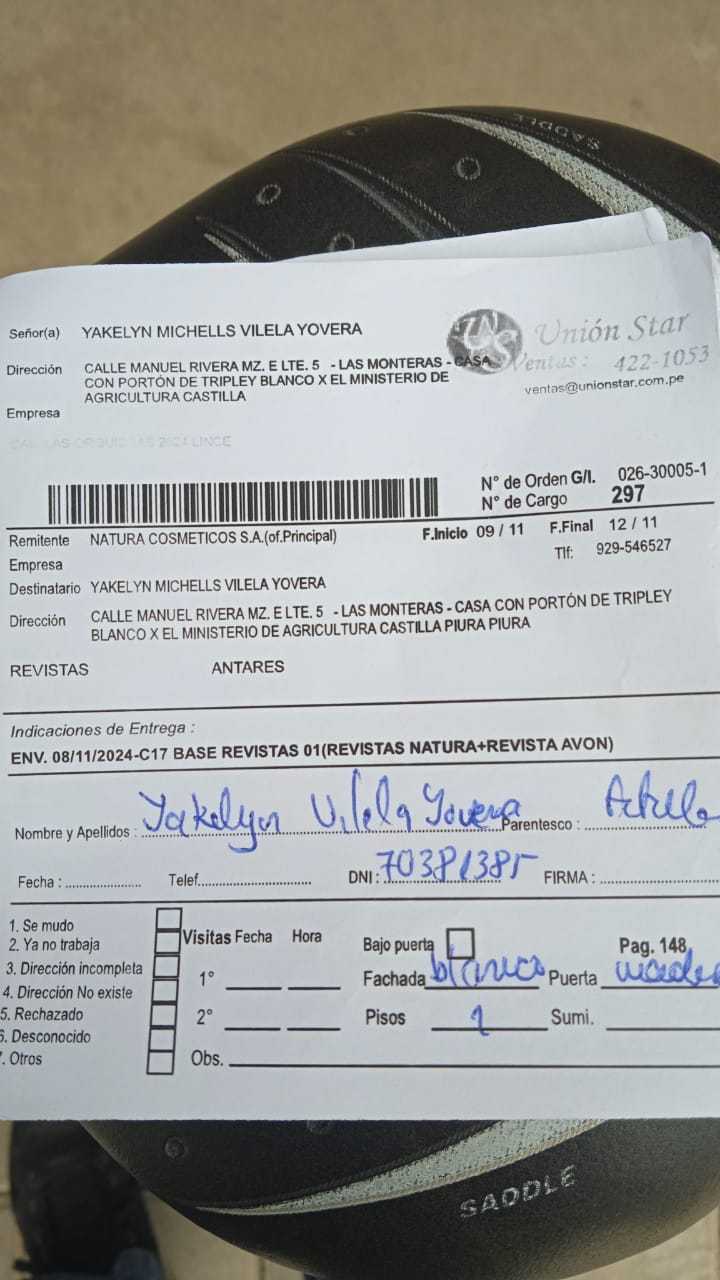 SADDLE
Señor(a) YAKELYN MICHELLS VILELA YOVERA
Unión Star
Dirección CALLE MANUEL RIVERA MZ. E LTE. 5 - LAS MONTERAS - CASA
CON PORTÓN DE TRIPLEY BLANCO X EL MINISTERIO DE
AGRICULTURA CASTILLA
Ventas : 422-1053
ventas@unionstar.com.pe
Empresa
2024 LINCE
N° de Orden G/I. 026-30005-1
N° de Cargo 297
Remitente NATURA COSMETICOS S.A.(of.Principal)
F.Inicio 09 / 11 F.Final 12 / 11
Empresa
Tlf: 929-546527
Destinatario YAKELYN MICHELLS VILELA YOVERA
Dirección CALLE MANUEL RIVERA MZ. E LTE. 5 - LAS MONTERAS - CASA CON PORTÓN DE TRIPLEY
BLANCO X EL MINISTERIO DE AGRICULTURA CASTILLA PIURA PIURA
REVISTAS ANTARES
Indicaciones de Entrega :
ENV. 08/11/2024-C17 BASE REVISTAS 01(REVISTAS NATURA+REVISTA AVON)
Nombre y Apellidos : Yakelyn Vilela Yovera Parentesco :
Fecha : Telef. DNI : 70381385 FIRMA :
1. Se mudo
2. Ya no trabaja
3. Dirección incompleta
4. Dirección No existe
5. Rechazado
6. Desconocido
7. Otros
Visitas Fecha Hora
1°
2°
Obs.
Bajo puerta Pag. 148
Fachada blanco Puerta
Pisos 1 Sumi.
SADDLE